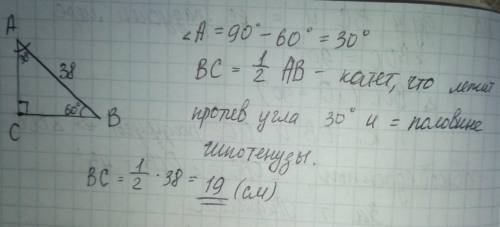 ∠A = 90° - 60° = 30°
BC = 1/2 AB - катет, что лежит
против угла 30° и = половине
гипотенузы.
BC = 1/2 · 38 = 19 (см)
A
38
60°
C
B